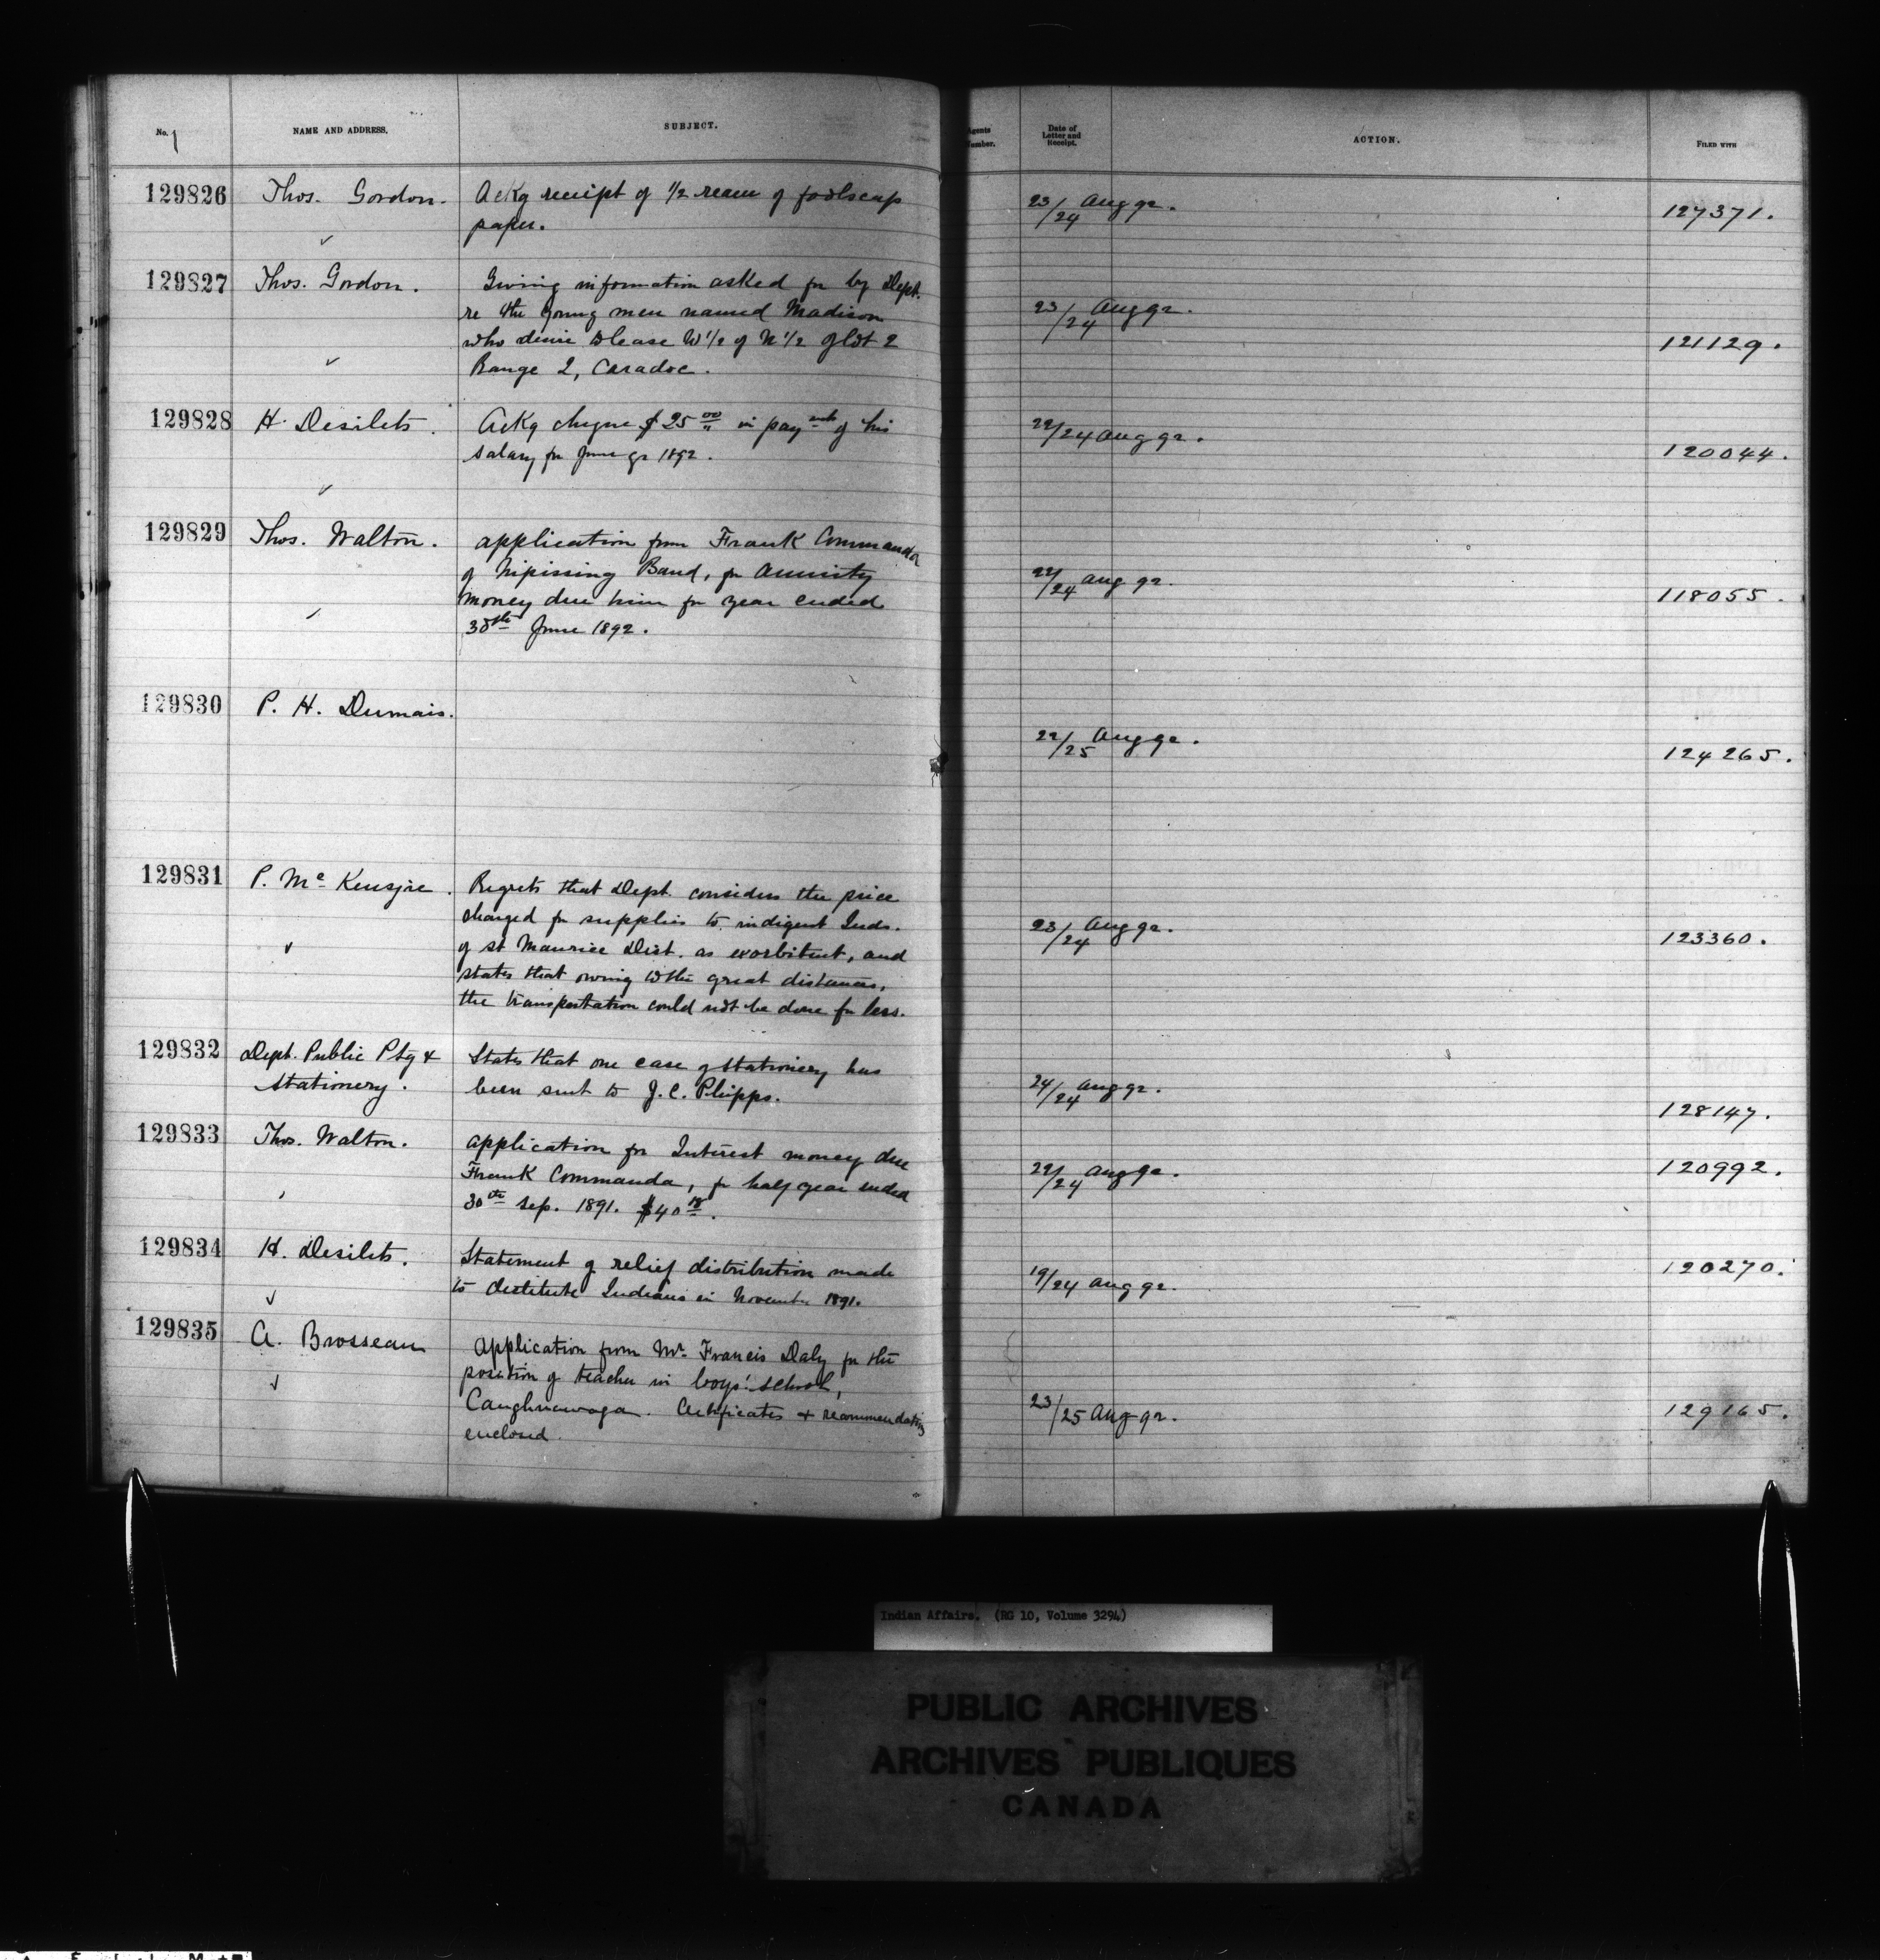 No. NAME AND ADDRESS. SUBJECT. Agents Number. Date of Letter and Receipt. ACTION. FILED WITH
129826 Thos. Gordon. Ackg receipt of 1/2 ream of foolscap 23/24 Aug 92. 127371.
paper.
129827 Thos. Gordon. Giving information asked for by Dept. 23/24 Aug 92. 121129.
re the young men named Madison
who desire to lease W 1/2 of N 1/2 of lot 2
Range 2, Caradoc.
129828 H. Desilets. Ackg cheque $25 00 in payment of his 22/24 Aug 92. 120044.
salary for June qr 1892.
129829 Thos. Walton. application from Frank Commanda 22/24 Aug 92. 118055.
of Nipissing Band, for Annuity
money due him for year ended
30th June 1892.
129830 P. H. Dumais. 22/25 Aug 92. 124265.
129831 P. Mc Kenzie. Regrets that Dept. considers the price 23/24 Aug 92. 123360.
charged for supplies to indigent Inds.
of St Maurice Dist. as exorbitant, and
states that owing to the great distances,
the transportation could not be done for less.
129832 Dept. Public Ptg & States that one case of stationery has 24/24 Aug 92. 128147.
Stationery. been sent to J. C. Phipps.
129833 Thos. Walton. application for Interest money due 22/24 Aug 92. 120992.
Frank Commanda, for half year ended
30th Sep. 1891. $40 18.
129834 H. Desilets. Statement of relief distribution made 19/24 Aug 92. 120270.
to destitute Indians in November 1891.
129835 A. Brosseau Application from Mr. Francis Daly for the 23/25 Aug 92. 129165.
position of teacher in boys' school,
Caughnawaga. Certificates & recommendations
enclosed.
Indian Affairs. (RG 10, Volume 3294)
PUBLIC ARCHIVES
ARCHIVES PUBLIQUES
CANADA